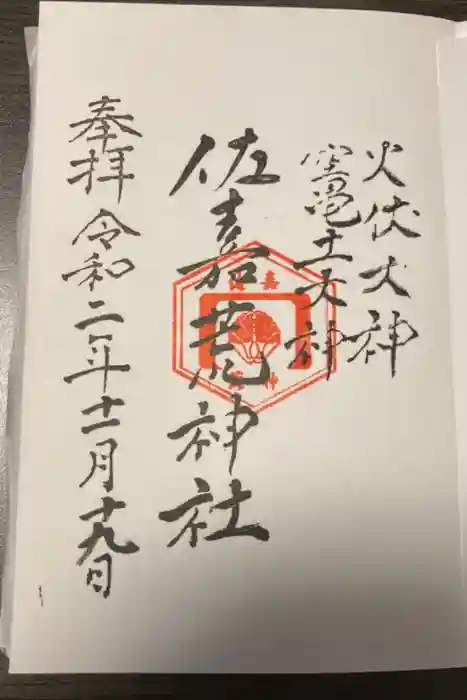 火伏大神
宝竈土大神
佐嘉荒神社
奉拝 令和二年十一月十九日